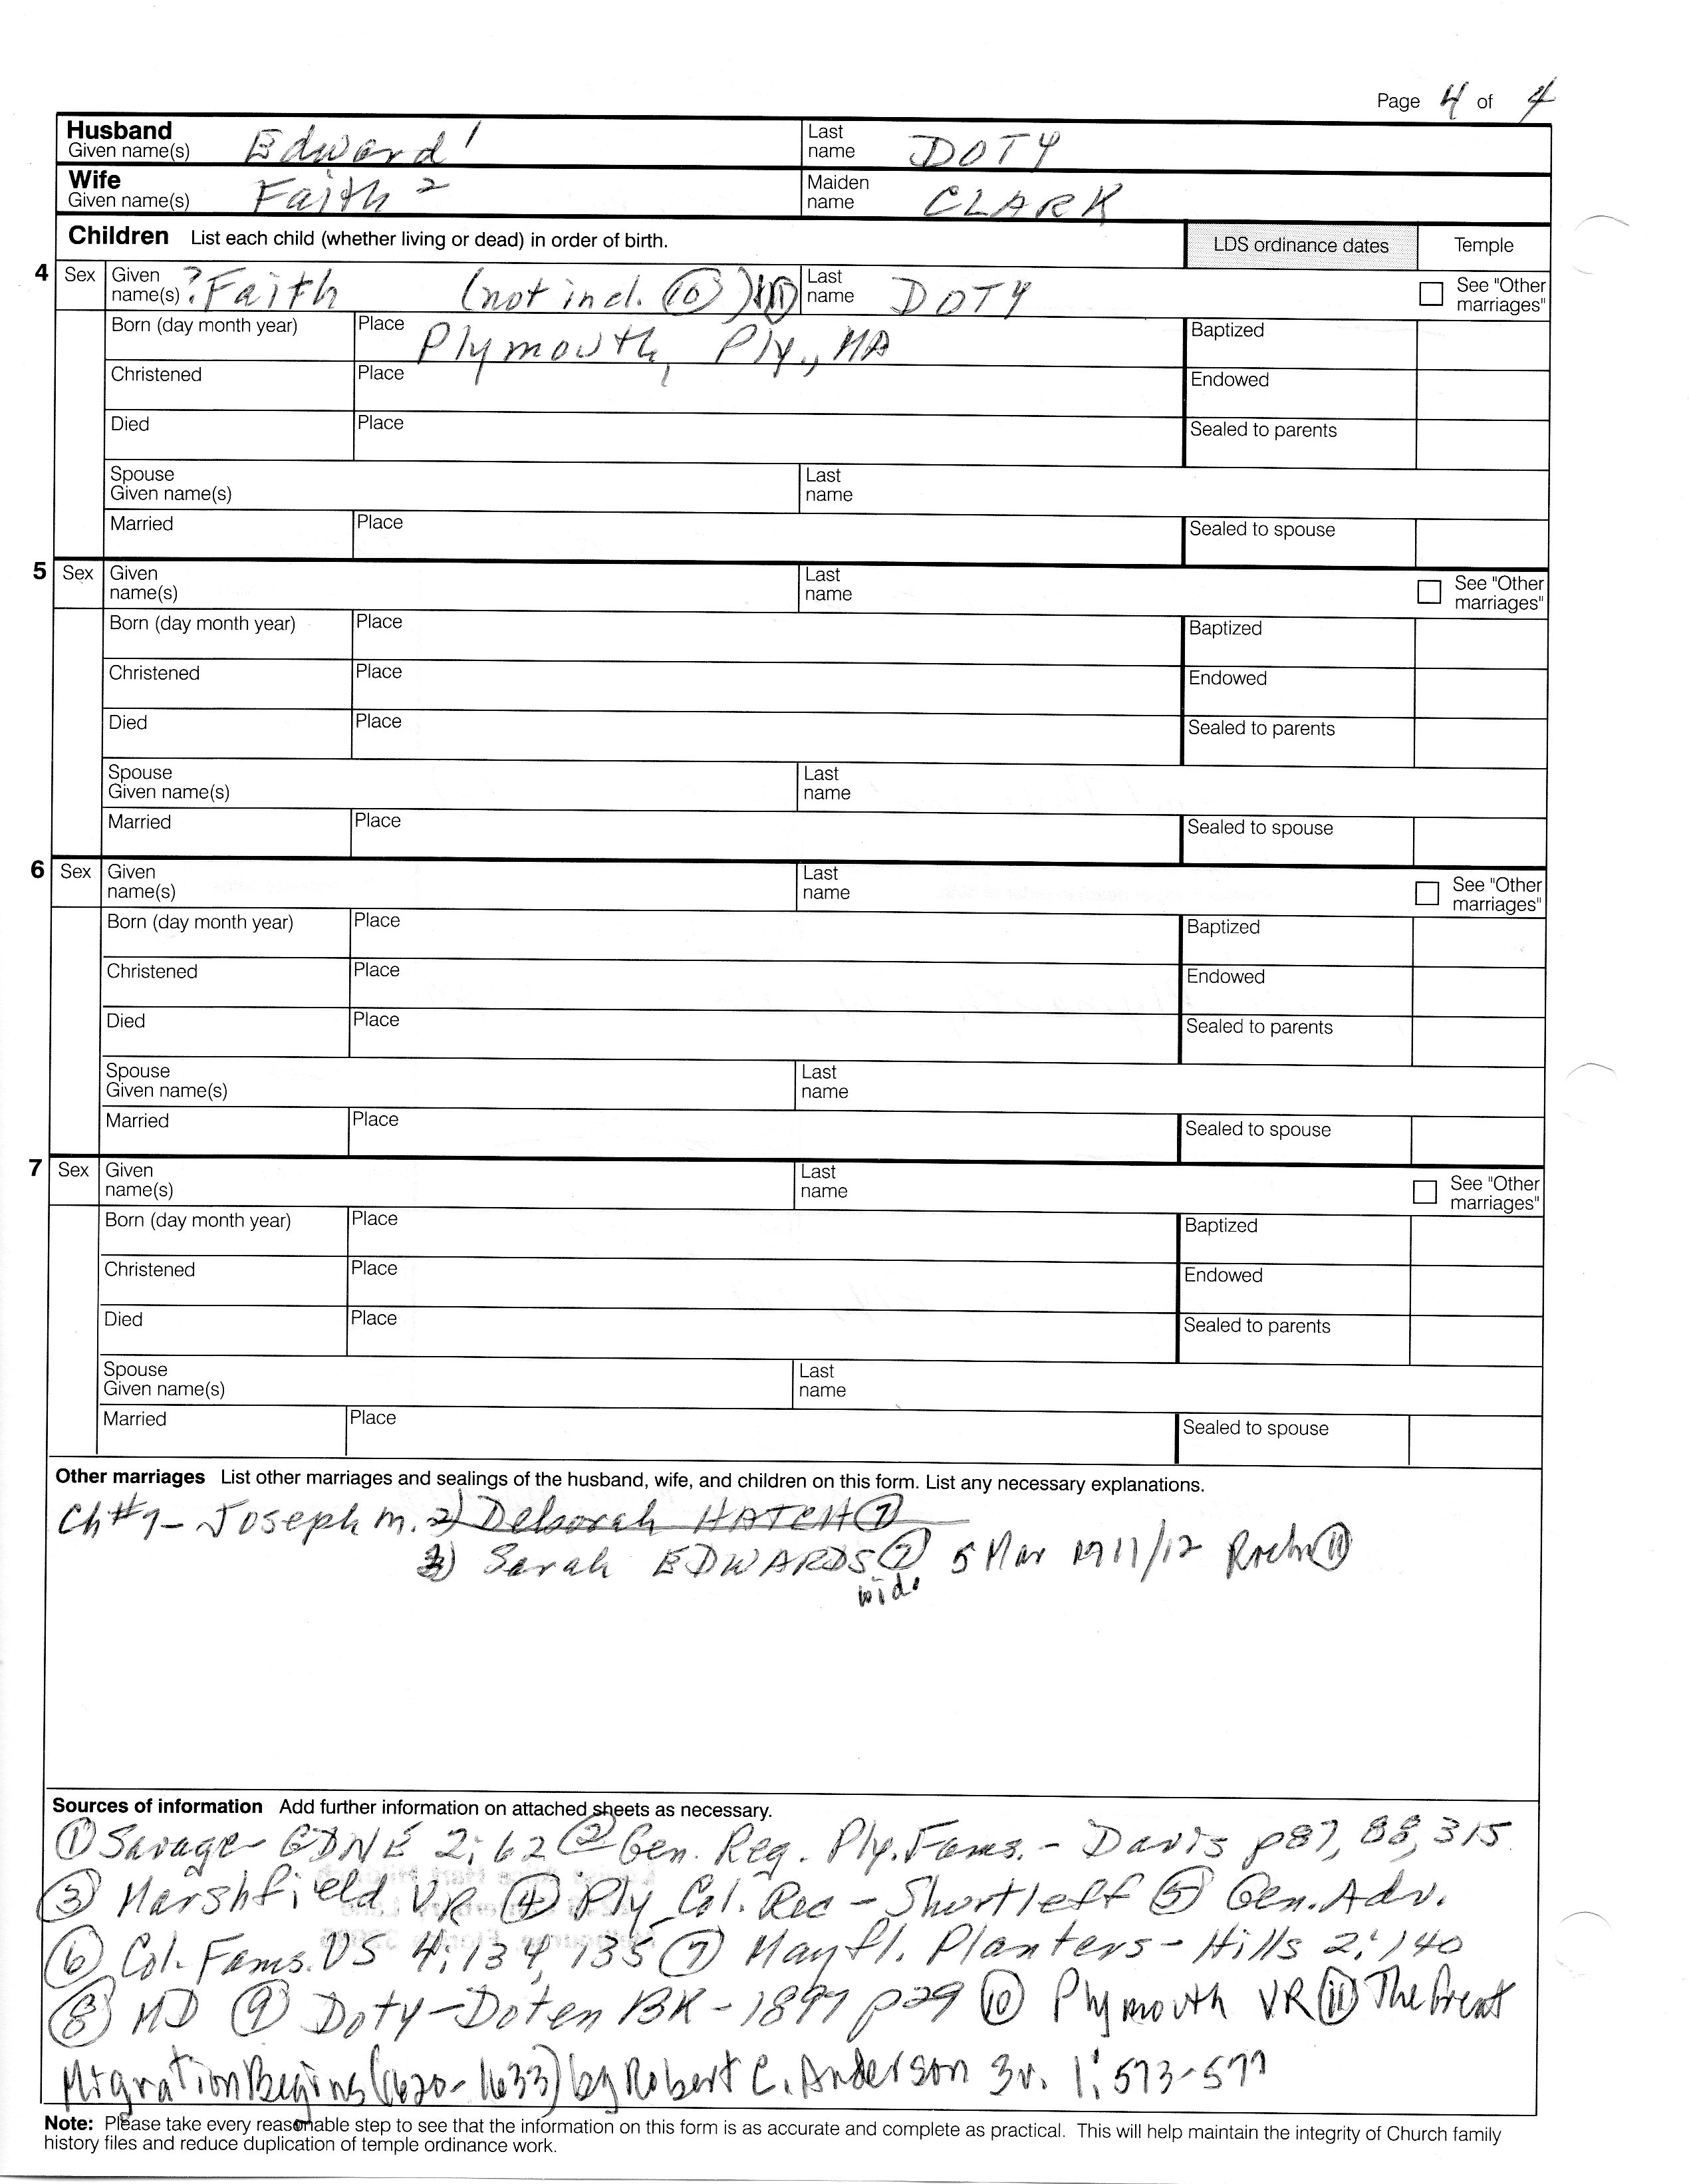 Page 4 of 4
Husband Given name(s) Edward 1 Last name DOTY
Wife Given name(s) Faith 2 Maiden name CLARK
Children List each child (whether living or dead) in order of birth. LDS ordinance dates Temple
4 Sex Given name(s) ?Faith (not incl. ⑩) ⑪ Last name DOTY See "Other marriages"
Born (day month year) Place Plymouth, Ply., MA Baptized
Christened Place Endowed
Died Place Sealed to parents
Spouse Given name(s) Last name
Married Place Sealed to spouse
5 Sex Given name(s) Last name See "Other marriages"
Born (day month year) Place Baptized
Christened Place Endowed
Died Place Sealed to parents
Spouse Given name(s) Last name
Married Place Sealed to spouse
6 Sex Given name(s) Last name See "Other marriages"
Born (day month year) Place Baptized
Christened Place Endowed
Died Place Sealed to parents
Spouse Given name(s) Last name
Married Place Sealed to spouse
7 Sex Given name(s) Last name See "Other marriages"
Born (day month year) Place Baptized
Christened Place Endowed
Died Place Sealed to parents
Spouse Given name(s) Last name
Married Place Sealed to spouse
Other marriages List other marriages and sealings of the husband, wife, and children on this form. List any necessary explanations.
Ch#1- Joseph m. 2) Deborah HATCH ⑦
Sarah EDWARDS ⑦ 5 Mar 1711/12 Roch ⑪
wid.
Sources of information Add further information on attached sheets as necessary.
① Savage- GDNE 2:62 ② Gen. Reg. Ply. Fams. - Davis p87, 88, 315
③ Marshfield VR ④ Ply Col. Rec - Shurtleff ⑤ Gen. Adv.
⑥ Col. Fams. US 4:134, 135 ⑦ Mayfl. Planters - Hills 2:140
⑧ MD ⑨ Doty-Doten BK - 1897 p29 ⑩ Plymouth VR ⑪ The Great
Migration Begins (1620-1633) by Robert C. Anderson 3v. 1:573-577
Note: Please take every reasonable step to see that the information on this form is as accurate and complete as practical. This will help maintain the integrity of Church family
history files and reduce duplication of temple ordinance work.